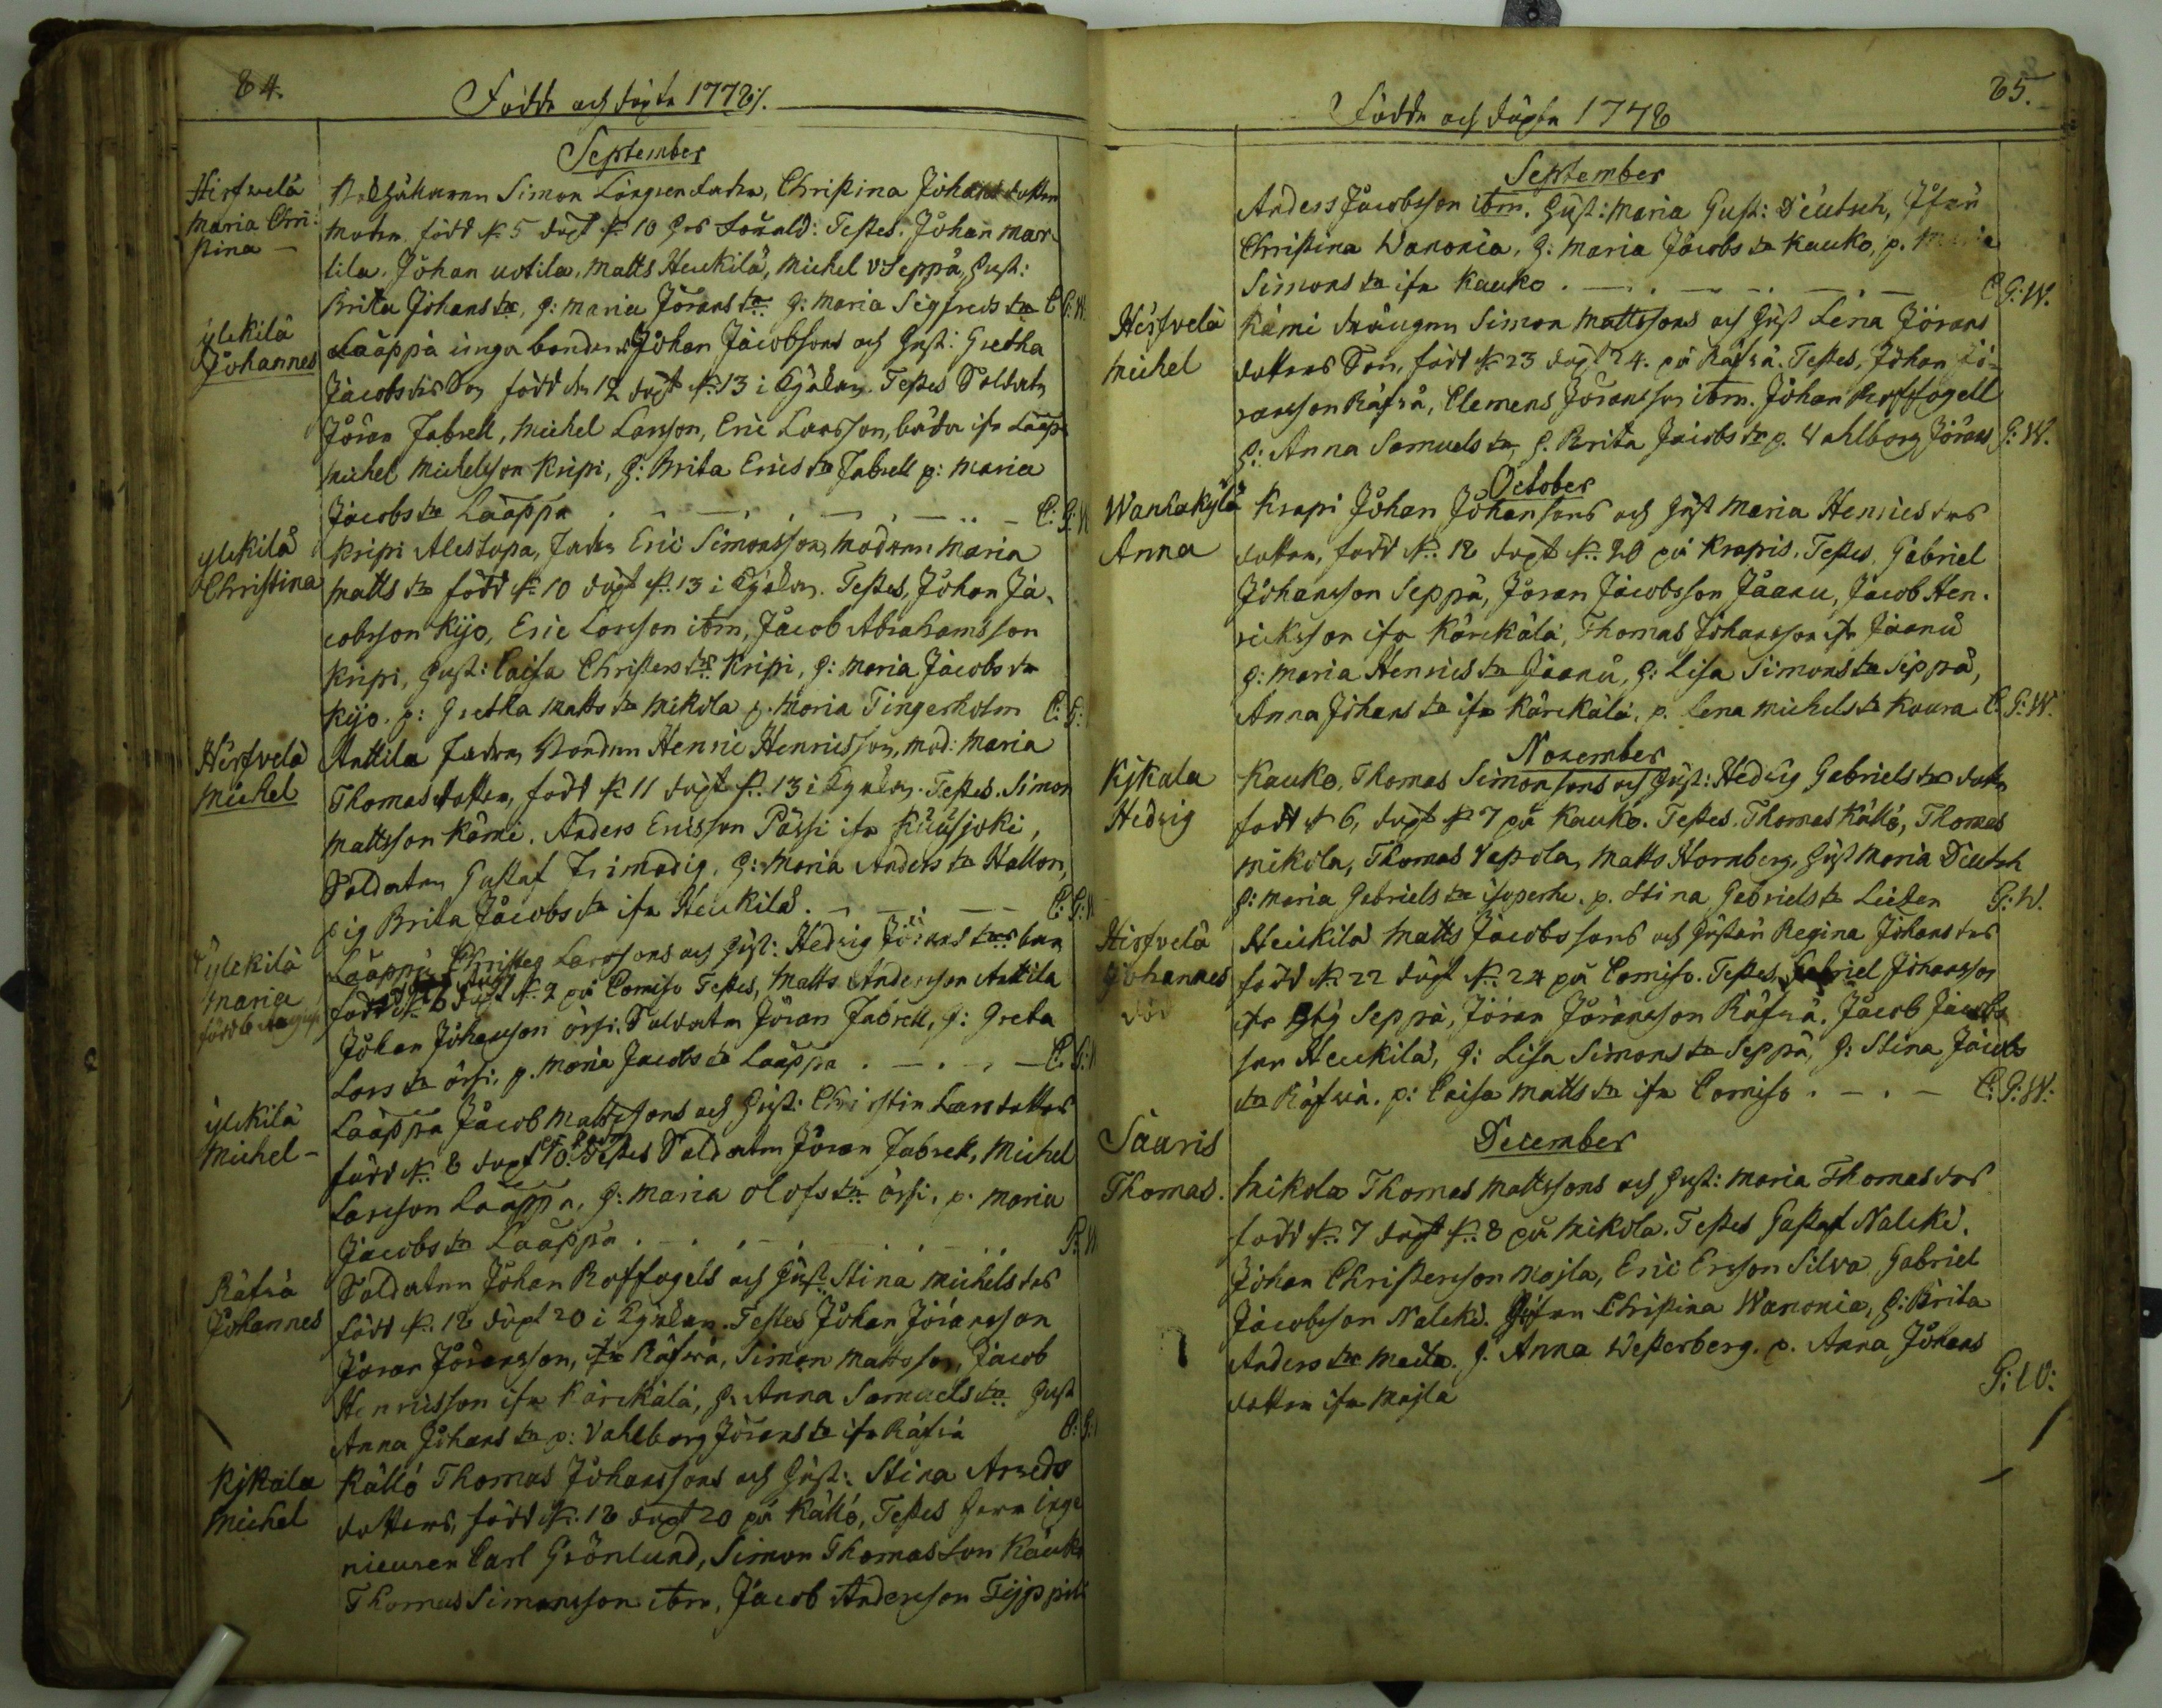 84.
Födde och döpte 1778.
September
Hirfvelä
Maria Chri:
stina
Simon Löngren fadren, Christina Johans dotter
modren född d. 5 döpt d. 10 Testes. Johan Mar-
tila. Johan uotila, Matts Heickilä, Michel Seppä, Hust:
Britta Johans dr, H: Maria Jörans dr H: Maria Sigfreds dr C. G: W.
ylikilä
Johannes
Lääppä unga bonden Johan Jacobsons och Hust: Gretha
Jacobs drs Son född d. 12 döpt d. 13 i Kyrkan. Testes Soldaten
Jöran Jabrell, Michel Larsson, Eric Larsson, båda ifr Lääpp
Michel Michelsson Kripi, H: Brita Erics dr Jabrell p: Maria
Jacobs dr Lääppä C: G: W
ylikilä
Christina
Kripi Alestupa, fadren Eric Simonsson, modren Maria
Matts dr född d. 10 döpt d. 13 i Kyrkan. Testes, Johan Ja-
cobsson Kijo, Eric Larsson ibm, Jacob Abrahamsson
Kripi, Hust: Caisa Christers dr Kripi, H: Maria Jacobs dr
Kijo. p: Gretha Matts dr Mikola p. Maria Tingerholm C: G:
Hirfvelä
Michel
Anttila fadren Bonden Henric Henricsson, mod: Maria
Thomas dotter, född d. 11 döpt d. 13 i Kyrkan. Testes. Simon
Mattsson Kämi, Anders Ericsson Pässi ifr Kuusjoki,
Soldaten Gustaf Frimodig, H: Maria Anders dr Hallon,
pig Brita Jacobs dr ifr Heickilä. C: G: W
ylikilä
Maria
född 6 Augusti
Lääppä Christer Larssons och Hust: Hedvig Jörans drs barn
född d. 6 döpt d. 9 på Comiso Testes, Matts Andersson Anttila
Johan Johansson örsi. Soldaten Jöran Jabrell, H: Greta
Lars dr örsi, p. Maria Jacobs dr Lääppä C: G: W
ylikilä
Michel
Lääppä Jacob Mattssons och Hust: Christin Larsdotters
född d. 8 döpt 10. Testes Soldaten Jöran Jabrell, Michel
Larsson Lääppä, H: Maria Olofs dr örsi, p. Maria
Jacobs dr Lääppä G: W
Räfsä
Johannes
Soldaten Johan Roffogels och Hust Stina Michels drs
född d. 18 döpt 20 i Kyrkan. Testes Johan Jöransson
Jöran Jöransson, ifr Räfsä, Simon Mattsson, Jacob
Henricsson ifr Kärckälä, H: Anna Samuels dr Hust
Anna Johans dr p: Vahlborg Jörans dr ifr Räfsä C: G:
Kijkala
Michel
Källö Thomas Johanssons och Hust: Stina Arveds
dotters, född d. 18 döpt 20 på Källö, Testes Herr Inge
nieuren Carl Grönlund, Simon Thomasson Kauko
Thomas Simonsson ibm, Jacob Andersson
85.
Födde och döpte 1778
September
Anders Jacobsson ibm. Hust: Maria Gust: Deutsch, Jfru
Christina Wanonia, H: Maria Jacobs dr Kauko, p. Maria
Simons dr ifr Kauko C G: W.
Hirfvelä
Michel
Kämi drängen Simon Mattssons och Hust Lena Jörans
dotters Son, född d. 23 döpt 24. på Räfsä. Testes, Johan Jö-
ransson Räfsä, Clemens Jöransson ibm. Johan Roffogell
H: Anna Samuels dr, H. Brita Jacobs dr p. Vahlborg Jörans G: W.
October
Wanhakylä
Anna
Krapi Johan Johanssons och Hust Maria Henrics drs
dotter, född d. 18 döpt d. 20 på Krapis. Testes, Gabriel
Johansson Seppä, Jöran Jacobsson Jäänu, Jacob Hen-
ricksson ifr Kärckälä, Thomas Johansson ifr Jäänu
H: Maria Henrics dr Jäänu, H: Lisa Simons dr Seppä,
Anna Johans dr ifr Kärckälä, p. Lena Michels dr Kaura C. G: W.
November
Kijkala
Hedvig
Kauko, Thomas Simonssons och Hust: Hedvig Gabriels drs dotter
född d 6, döpt d. 7 på Kauko. Testes. Thomas Källö, Thomas
Mikola, Thomas Uapola, Matts Hornberg, Hust Maria Deutsch
H: Maria Gabriels dr Isoperhe. p. Stina Gabriels dr Leisten G: W.
Hirfvelä
Johannes
död
Heickilä Matts Jacobssons och Hustru Regina Johans drs
född d. 22 döpt d. 24 på Comiso. Testes, Gabriel Johansson
ifr Seppä, Jöran Jöransson Räfsä, Jacob Jacobs
son Heickilä, H: Lisa Simons dr Seppä, H: Stina Jacobs
dr Räfsä. p: Caisa Matts dr ifr Comiso C: G: W:
December
Säuris
Thomas.
Mikola Thomas Mattssons och Hust: Maria Thomas drs
född d. 7 döpt d. 8 på Mikola. Testes Gustaf Nalcki.
Johan Christersson Majla, Eric Ersson Silva, Gabriel
Jacobsson Nalcki. Jfrun Christina Wanonia, H: Brita
Anders dr H: Anna Westerberg. p. Anna Johans
dotter ifr Majla G: W: